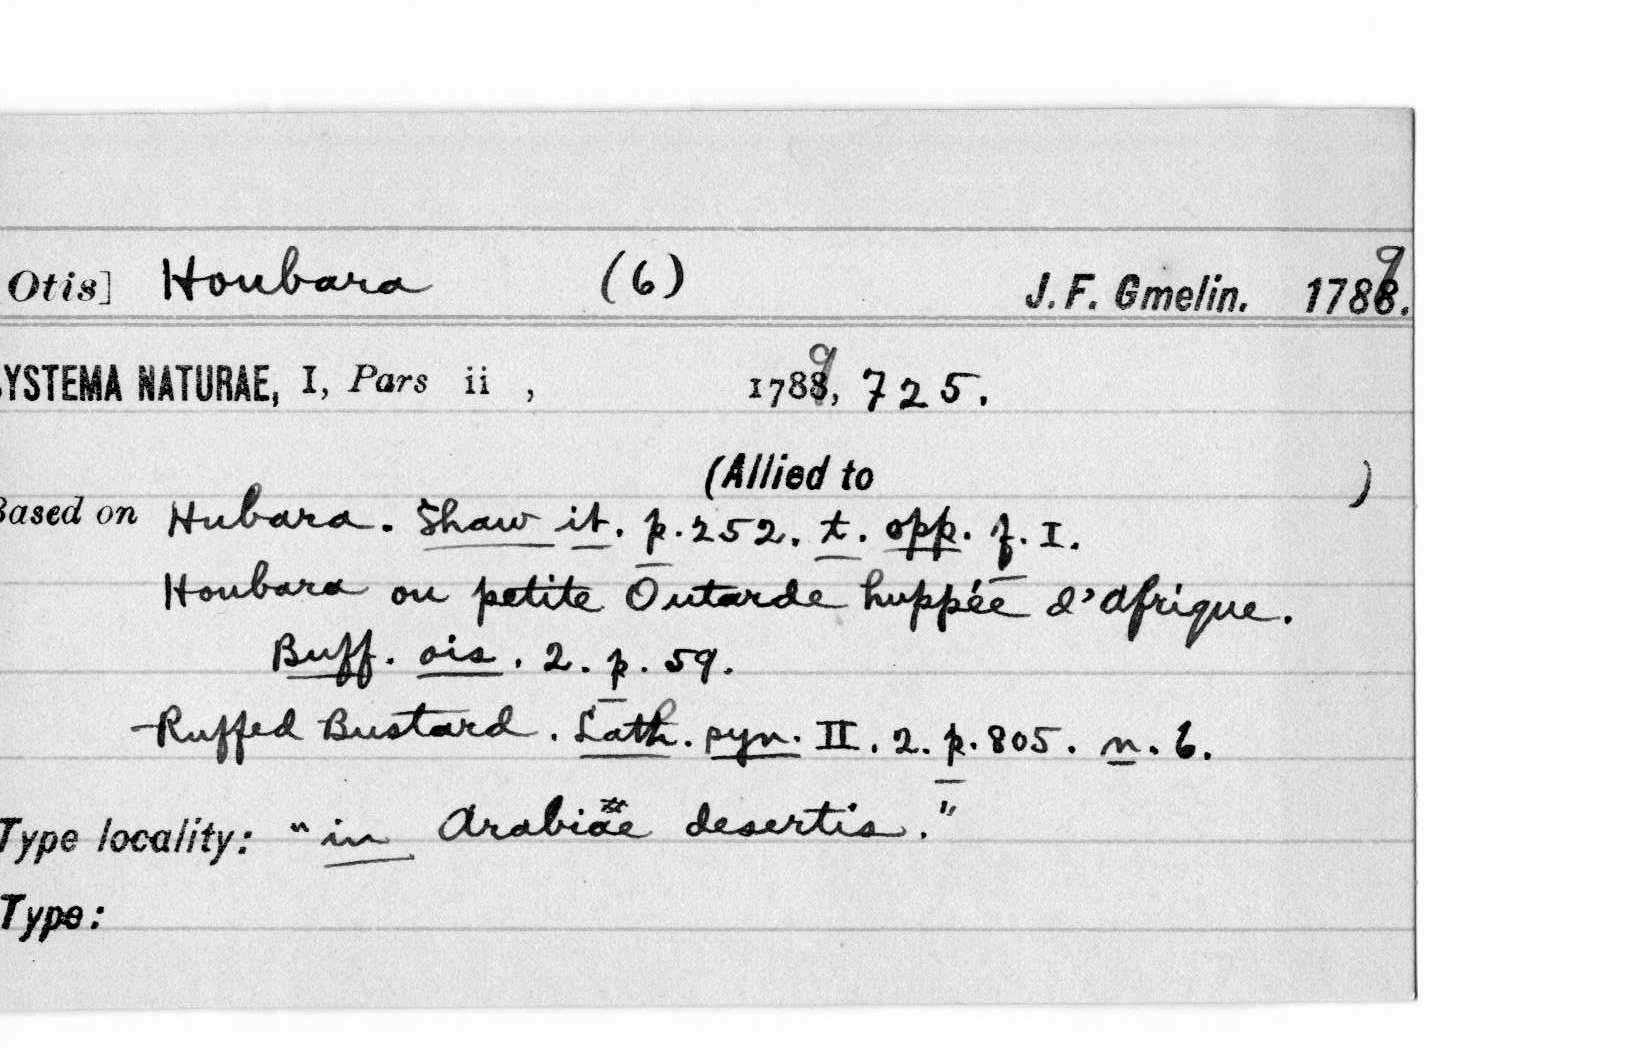 Otis] Houbara (6) J. F. Gmelin. 1789.
SYSTEMA NATURAE, I, Pars ii , 1789, 725.
(Allied to )
Based on Hubara. Shaw it. p. 252. t. opp. f. I.
Houbara ou petite Outarde huppée d'Afrique.
Buff. ois. 2. p. 59.
Ruffed Bustard. Lath. syn. II. 2. p. 805. n. 6.
Type locality: "in Arabiae desertis."
Type: